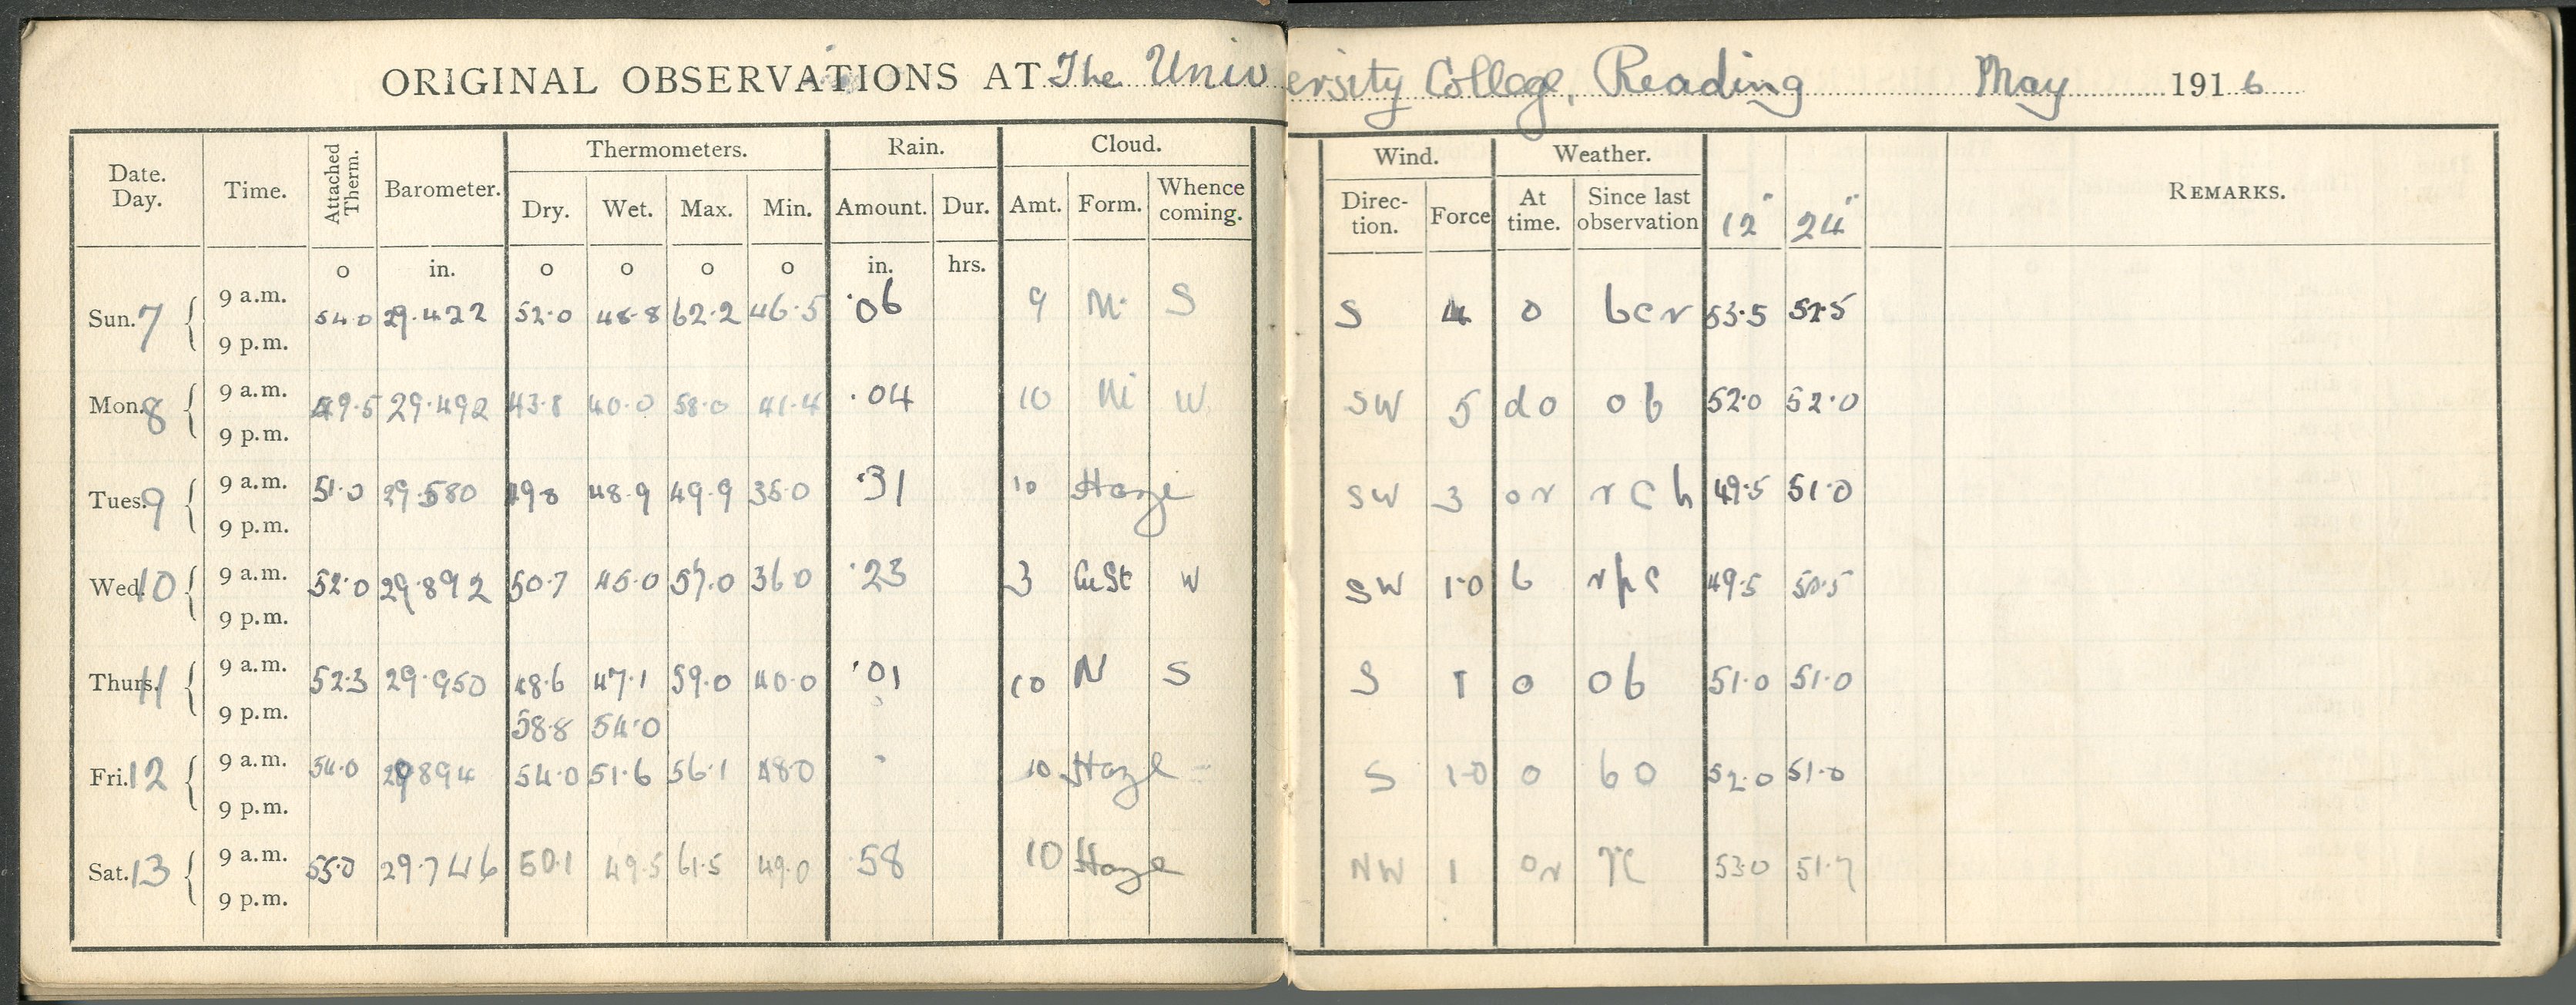 ORIGINAL OBSERVATIONS AT The University College, Reading May 1916
Thermometers. Rain. Cloud. Wind. Weather.
Date. Day. Time. Attached Therm. Barometer. Dry. Wet. Max. Min. Amount. Dur. Amt. Form. Whence coming. Direc- tion. Force At time. Since last observation 12" 24" REMARKS.
o in. o o o o in. hrs.
Sun. 7 9 a.m. 54.0 29.422 52.0 48.8 62.2 46.5 .06 9 S S 4 o bcr 53.5
9 p.m.
Mon. 8 9 a.m. 49.5 29.492 43.8 40.0 58.0 41.4 .04 10 Ni W SW 5 do ob 52.0 52.0
9 p.m.
Tues. 9 9 a.m. 51.0 29.580 49.8 48.9 49.9 35.0 .31 10 Haze SW 3 or rch 49.5 51.0
9 p.m.
Wed. 10 9 a.m. 52.0 29.892 50.7 45.0 57.0 36.0 .23 3 CuSt W SW 1-0 b rpc 49.5 50.5
9 p.m.
Thurs. 11 9 a.m. 52.3 29.950 48.6 47.1 59.0 40.0 .01 10 N S S 1 o ob 51.0 51.0
9 p.m. 58.8 54.0
Fri. 12 9 a.m. 54.0 29.894 54.0 51.6 56.1 48.0 - 10 Haze - S 1-0 o bo 52.0 51.0
9 p.m.
Sat. 13 9 a.m. 55.0 29.746 50.1 49.5 61.5 49.0 .58 10 Haze NW 1 or rc 53.0 51.7
9 p.m.